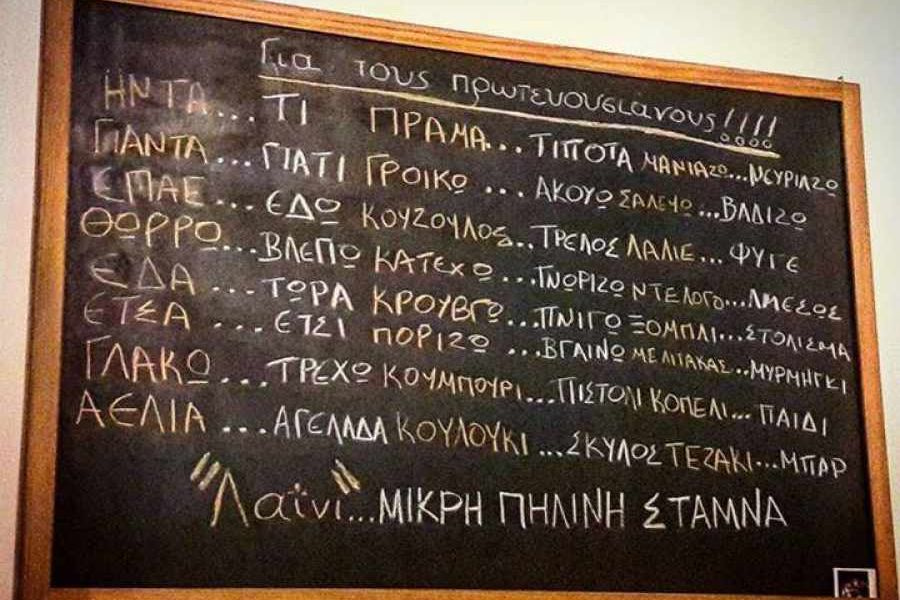 Για τους πρωτευουσιάνους!!!!
ΗΝΤΑ...ΤΙ ΠΡΑΜΑ...ΤΙΠΟΤΑ ΜΑΝΙΑΖΩ...ΝΕΥΡΙΑΖΩ
ΓΙΑΝΤΑ...ΓΙΑΤΙ ΓΡΟΙΚΩ...ΑΚΟΥΩ ΣΑΛΕΥΩ...ΒΑΔΙΖΩ
ΕΠΑΕ...ΕΔΩ ΚΟΥΖΟΥΛΟΣ...ΤΡΕΛΟΣ ΛΑΛΙΕ...ΦΥΓΕ
ΘΩΡΡΩ...ΒΛΕΠΩ ΚΑΤΕΧΩ...ΓΝΩΡΙΖΩ ΝΤΕΛΟΓΩ...ΑΜΕΣΩΣ
ΕΔΑ...ΤΩΡΑ ΚΡΟΥΒΓΩ...ΠΝΙΓΩ ΞΟΜΠΛΙ...ΣΤΟΛΙΣΜΑ
ΕΤΣΑ...ΕΤΣΙ ΠΟΡΙΖΩ...ΒΓΑΙΝΩ ΜΕΛΙΤΑΚΑΣ..ΜΥΡΜΗΓΚΙ
ΓΛΑΚΩ...ΤΡΕΧΩ ΚΟΥΜΠΟΥΡΙ...ΠΙΣΤΟΛΙ ΚΟΠΕΛΙ...ΠΑΙΔΙ
ΑΕΛΙΑ...ΑΓΕΛΑΔΑ ΚΟΥΛΟΥΚΙ...ΣΚΥΛΟΣ ΤΕΖΑΚΙ...ΜΠΑΡ
"Λαϊνι"...ΜΙΚΡΗ ΠΗΛΙΝΗ ΣΤΑΜΝΑ